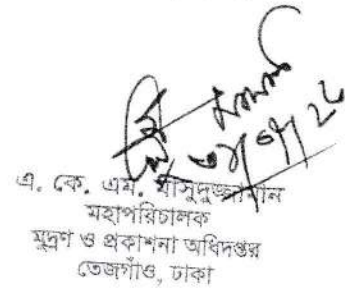 এ. কে. এম. মাসুদুজ্জামান
মহাপরিচালক
মুদ্রণ ও প্রকাশনা অধিদপ্তর
তেজগাঁও, ঢাকা